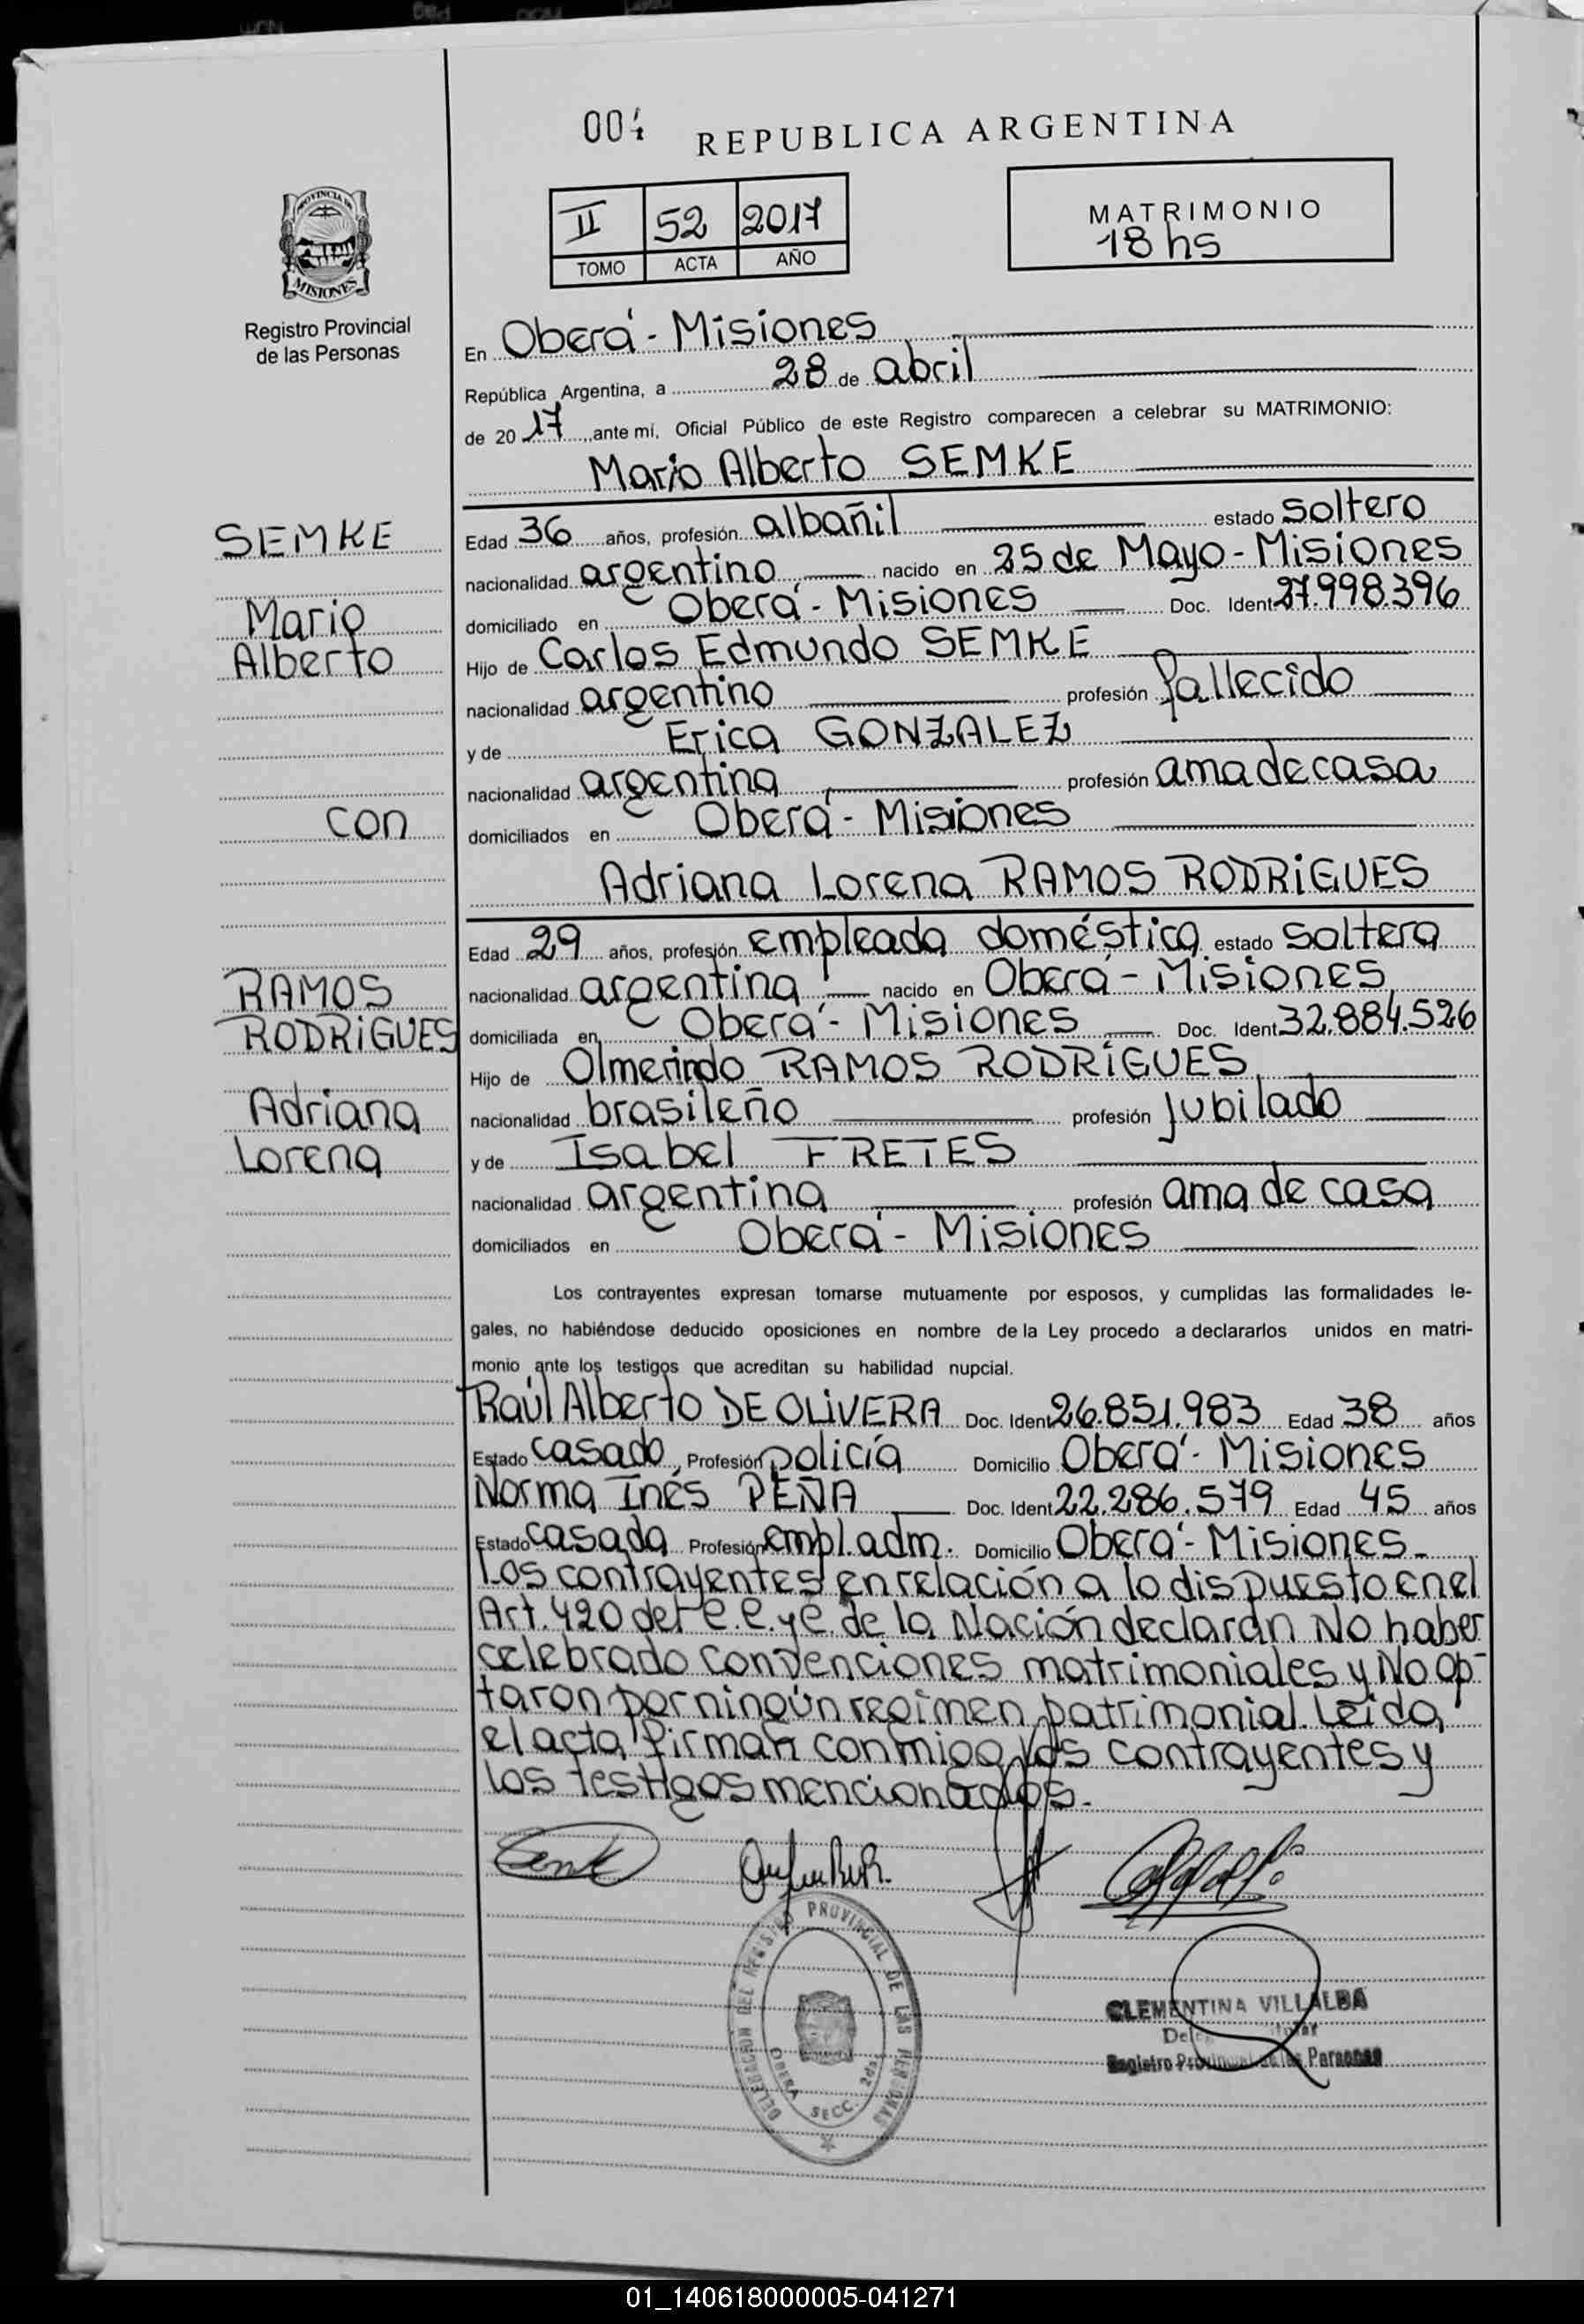 004 REPUBLICA ARGENTINA
II 52 2017
TOMO ACTA AÑO
MATRIMONIO
18 hs
PROVINCIA DE
MISIONES
Registro Provincial
de las Personas
En Oberá - Misiones
República Argentina, a 28 de abril
de 2017, ante mí, Oficial Público de este Registro comparecen a celebrar su MATRIMONIO:
Mario Alberto SEMKE
SEMKE
Mario
Alberto
con
RAMOS
RODRIGUES
Adriana
Lorena
Edad 36 años, profesión albañil estado soltero
nacionalidad argentino nacido en 25 de Mayo - Misiones
domiciliado en Oberá - Misiones Doc. Ident 27.998.396
Hijo de Carlos Edmundo SEMKE
nacionalidad argentino profesión fallecido
y de Erica GONZALEZ
nacionalidad argentina profesión ama de casa
domiciliados en Oberá - Misiones
Adriana Lorena RAMOS RODRIGUES
Edad 29 años, profesión empleada doméstica estado soltera
nacionalidad argentina nacido en Oberá - Misiones
domiciliada en Oberá - Misiones Doc. Ident 32.884.526
Hijo de Olmerindo RAMOS RODRIGUES
nacionalidad brasileño profesión jubilado
y de Isabel FRETES
nacionalidad argentina profesión ama de casa
domiciliados en Oberá - Misiones
Los contrayentes expresan tomarse mutuamente por esposos, y cumplidas las formalidades le-
gales, no habiéndose deducido oposiciones en nombre de la Ley procedo a declararlos unidos en matri-
monio ante los testigos que acreditan su habilidad nupcial.
Raúl Alberto DE OLIVERA Doc. Ident 26.851.983 Edad 38 años
Estado casado Profesión policía Domicilio Oberá - Misiones
Norma Inés PEÑA Doc. Ident 22.286.579 Edad 45 años
Estado casada Profesión empl. adm. Domicilio Oberá - Misiones
Los contrayentes en relación a lo dispuesto en el
Art. 420 del C.C. y C. de la Nación declaran No haber
celebrado convenciones matrimoniales y No op-
taron por ningún regimen patrimonial. Leida
el acta firman conmigo los contrayentes y
los testigos mencionados.
DELEGACION DEL REGISTRO PROVINCIAL DE LAS PERSONAS
OBERA SECC. 2da
CLEMENTINA VILLALBA
Registro Provincial de las Personas
01_140618000005-041271